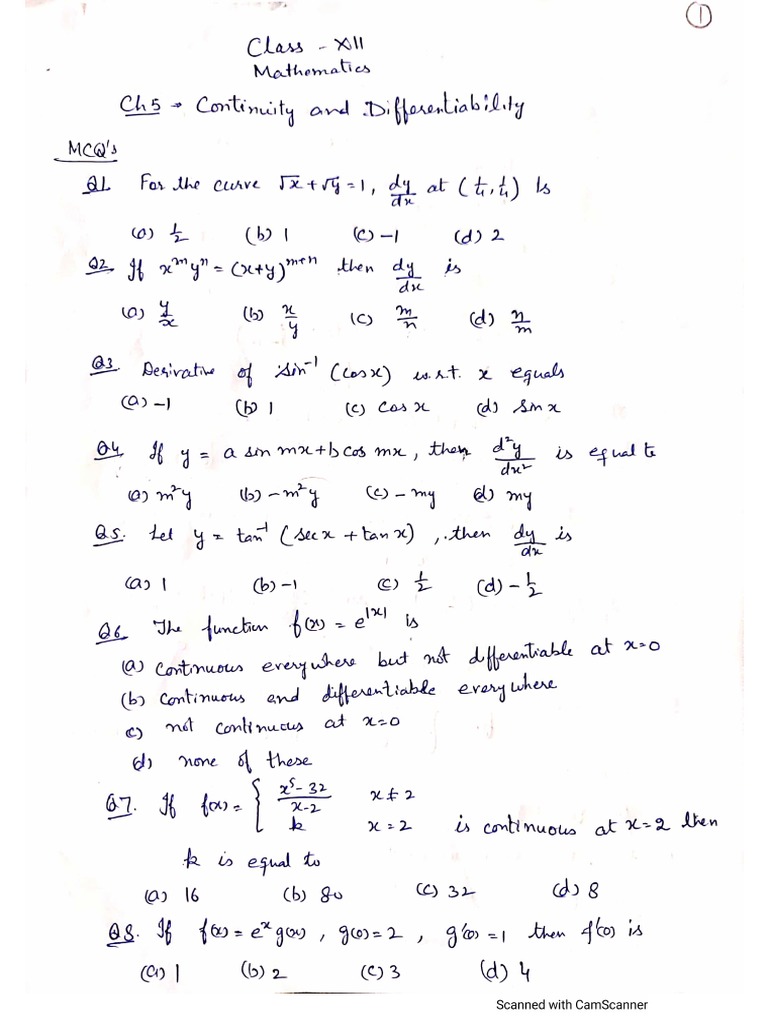 ①
Class - XII
Mathematics
Ch 5 → Continuity and Differentiability
MCQ's
Q1. For the curve √x + √y = 1, dy/dx at (1/4, 1/4) is
(a) 1/2 (b) 1 (c) -1 (d) 2
Q2. If x^m y^n = (x+y)^(m+n) then dy/dx is
(a) y/x (b) x/y (c) m/n (d) n/m
Q3. Derivative of sin⁻¹ (cos x) w.r.t. x equals
(a) -1 (b) 1 (c) cos x (d) sin x
Q4. If y = a sin mx + b cos mx, then d²y/dx² is equal to
(a) m²y (b) -m²y (c) -my (d) my
Q5. Let y = tan⁻¹ (sec x + tan x), then dy/dx is
(a) 1 (b) -1 (c) 1/2 (d) -1/2
Q6. The function f(x) = e^|x| is
(a) continuous everywhere but not differentiable at x=0
(b) continuous and differentiable everywhere
c) not continuous at x=0
d) none of these
Q7. If f(x) = { (x⁵ - 32)/(x-2) x ≠ 2
k x = 2 is continuous at x=2 then
k is equal to
(a) 16 (b) 80 (c) 32 (d) 8
Q8. If f(x) = e^x g(x), g(0) = 2, g'(0) = 1 then f'(0) is
(a) 1 (b) 2 (c) 3 (d) 4
Scanned with CamScanner